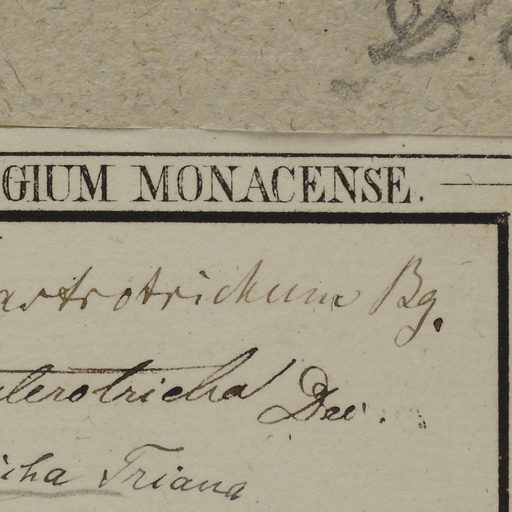 GIUM MONACENSE.
astrotrichum Bg.
terotricha
icha Triana